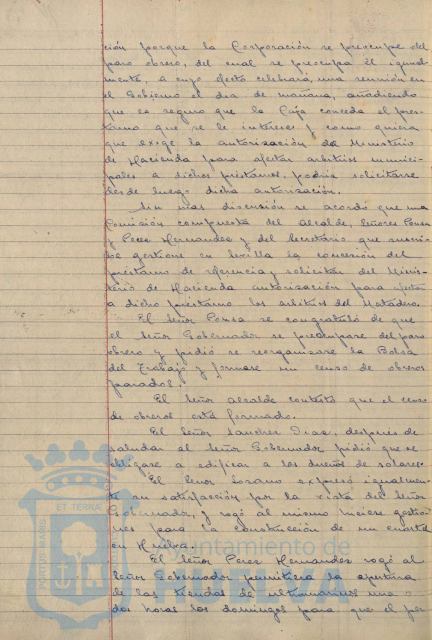 ción porque la Corporación se preocupe del
paro obrero, del cual se preocupa él igual-
mente, a cuyo efecto celebrará una reunión en
el Gobierno el dia de mañana, añadiendo
que es seguro que la Caja conceda el pres-
tamo que se le interese y como quiera
que exige la autorización del Ministerio
de Hacienda para afectar arbitrios munici-
pales a dichos préstamos, podria solicitarse
desde luego dicha autorización.
Sin mas discusión se acordó que una
Comisión compuesta del Alcalde, Señores Ponsa
y Perez Hernandez y del Secretario que suscri-
be gestione en Sevilla la concesión del
préstamo de referencia y soliciten del Minis-
terio de Hacienda autorización para afectar
a dicho préstamo los arbitrios del Matadero.
El Señor Ponsa se congratuló de que
el Señor Gobernador se preocupase del paro
obrero y pidió se reorganizare la Bolsa
del Trabajo y formase un censo de obreros
parados.
El Señor Alcalde contestó que el censo
de obreros está formado.
El Señor Sanchez Diaz, después de
saludar al Señor Gobernador pidió que se
obligase a edificar a los dueños de solares.
El Señor Lozano expresó igualmen-
te su satisfacción por la visita del Señor
Gobernador, y rogó al mismo hiciese gestio-
nes para la construcción de un cuartel
en Huelva.
El Señor Perez Hernandez rogó al
Señor Gobernador permitiera la apertura
de las tiendas de ultramarinos una o
dos horas los domingos para que el per
PORTUS MARIS ET TERRAE
Ayuntamiento de
HUELVA